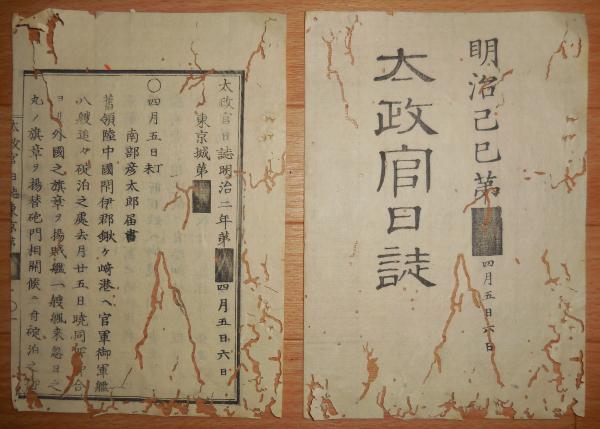 明治己巳第 四月五六日
太政官日誌
太政官日誌明治二年第 四月五六日
東京城第
〇四月五日丁未
南部彦太郎届書
舊領陸中國閉伊郡鍬ヶ崎港ヘ官軍御軍艦
八艘追々碇泊之處去月廿五日暁同 合
ヨリ外國之旗章ヲ揚賊艦一艘颿来忽日之
丸ノ旗章ヲ揚替砲門相開候ニ付碇泊之
太政官日誌東京第 〇一